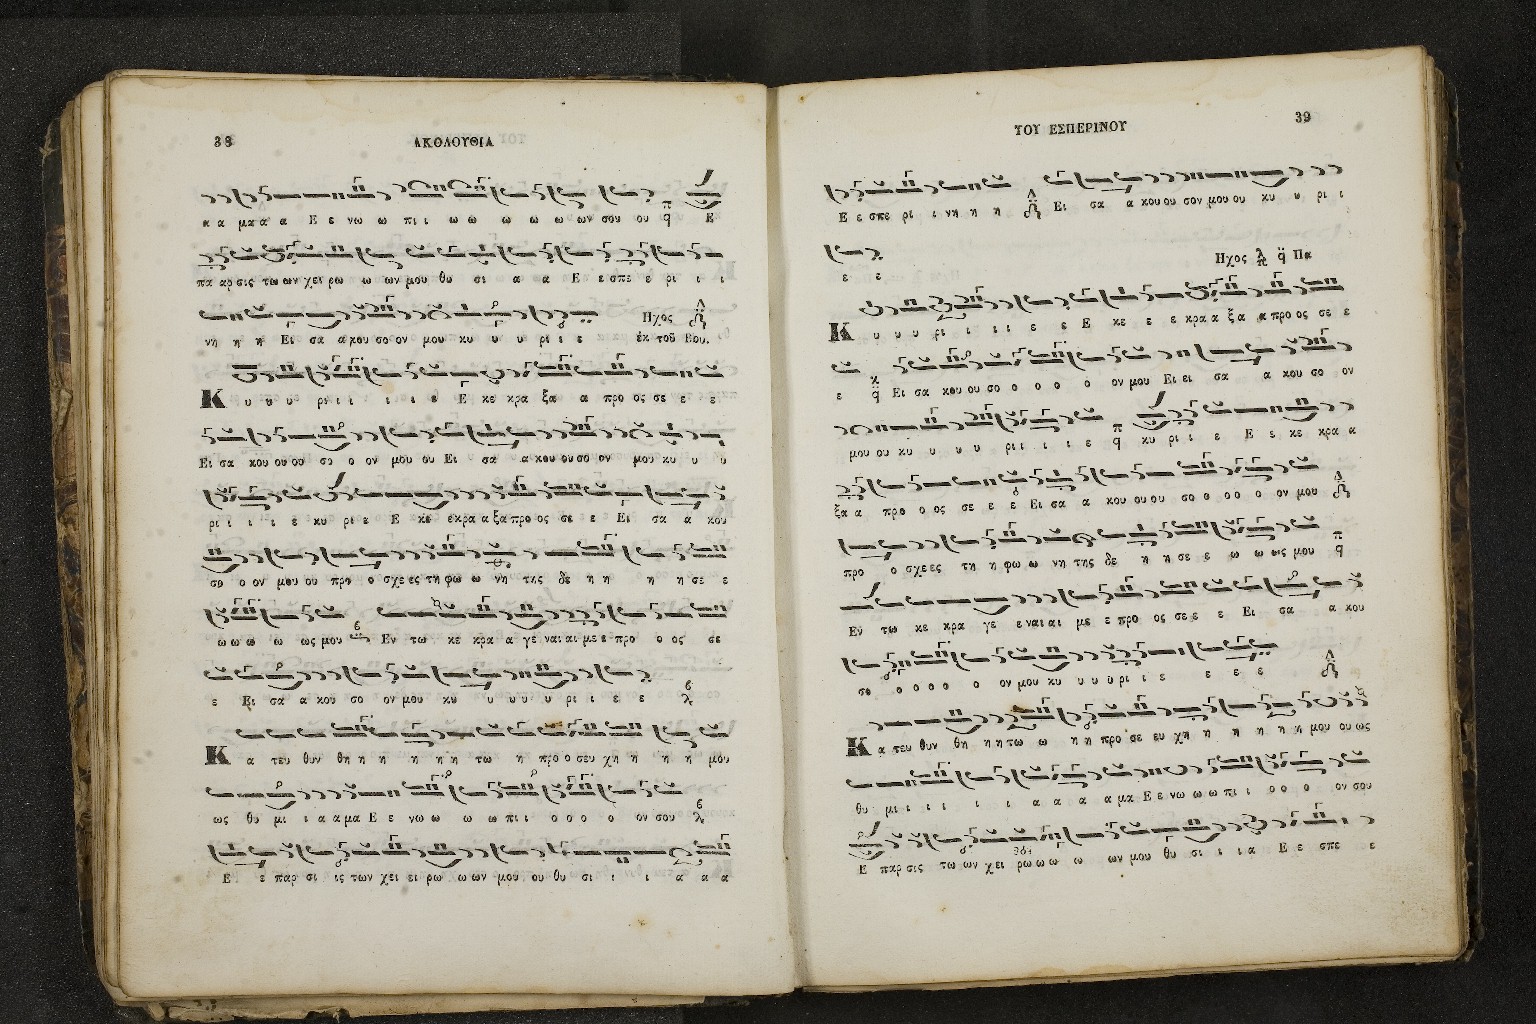 38
ΑΚΟΛΟΥΘΙΑ
α α μα α α Ε ε νω ω πι ι ω ω ω ω ω ων σου ου Ε
πα αρ σις τω ων χει ρω ω ων μου θυ σι α α Ε ε σπε ε ρι ι ι
νη η η Ει σα α κου σο ον μου κυ υ υ ρι ι ε Ηχος
ἐκ τοῦ Βου.
Κ υ υ υ ρι ι ι ι ι ε Ε κε κρα ξα α προ ος σε ε ε
Ει σα κου ου ου σο ο ον μου ου Ει σα α κου ου σο ον μου κυ υ υ
ρι ι ι ι ε κυ ρι ε Ε κε ε κρα α ξα προ ος σε ε Ει σα α κου
σο ο ον μου ου προ ο σχε ες τη φω ω νη της δε η η η η σε ε
ω ω ω ω ως μου Εν τω κε κρα α γε ναι αι με ε προ ο ος σε
ε Ει σα α κου σο ον μου κυ υ υ υ υ ρι ι ε ε
Κ α τευ θυν θη η η η η η τω η προ ο σευ χη η η η μου
ως θυ μι ι α α μα Ε ε νω ω ω ω πι ι ο ο ο ο ον σου
Ε ε παρ σι ις των χει ει ρω ω ων μου ου θυ σι ι ι α α α
ΤΟΥ ΕΣΠΕΡΙΝΟΥ
39
Ε ε σπε ρι ι νη η η Ει σα α κου ου σον μου ου κυ υ ρι ι
ε ε Ηχος Πα
Κ υ υ υ ρι ι ι ι ε ε Ε κε ε ε κρα α ξα α προ ος σε ε
ε Ει σα κου ου σο ο ο ο ο ον μου Ει ει σα α κου σο ον
μου ου κυ υ υ υ ρι ι ι ι ε κυ ρι ι ε Ε ε κε κρα α
ξα α προ ο ος σε ε ε Ει σα α κου ου ου σο ο ο ο ο ον μου
προ ο σχε ες τη η φω ω νη της δε η η σε ε ω ω ως μου
Εν τω κε κρα γε ε ναι αι με ε προ ος σε ε ε Ει σα α κου
σο ο ο ο ο ο ον μου κυ υ υ υ ρι ι ε ε ε ε
Κ α τευ θυν θη η η τω ω η η προ σε ευ χη η η η η η μου ου ως
θυ μι ι ι ι ι ι α α α α μα Ε ε νω ω ω πι ι ο ο ο ον σου
Ε παρ σις τω ων χει ρω ω ω ω ων μου θυ σι ι ι α Ε ε σπε ε